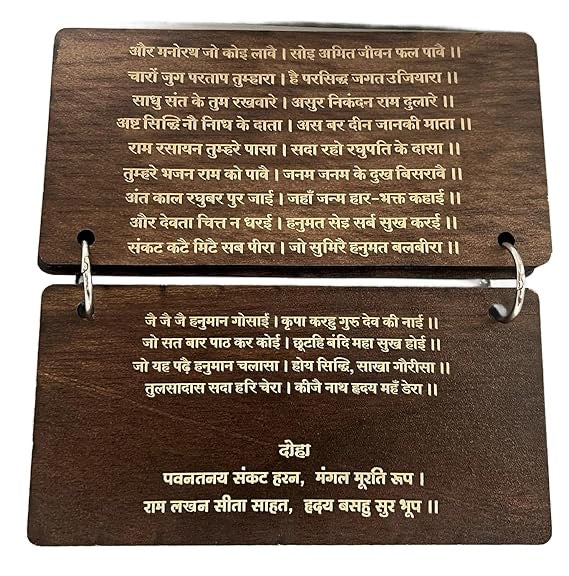 और मनोरथ जो कोइ लावै । सोइ अमित जीवन फल पावै ।।
चारों जुग परताप तुम्हारा । है परसिद्ध जगत उजियारा ।।
साधु संत के तुम रखवारे । असुर निकंदन राम दुलारे ।।
अष्ट सिद्धि नौ निाध के दाता । अस बर दीन जानकी माता ।।
राम रसायन तुम्हरे पासा । सदा रहो रघुपति के दासा ।।
तुम्हरे भजन राम को पावै । जनम जनम के दुख बिसरावै ।।
अंत काल रघुबर पुर जाई । जहाँ जन्म हार-भक्त कहाई ।।
और देवता चित्त न धरई । हनुमत सेइ सर्ब सुख करई ।।
संकट कटै मिटै सब पीरा । जो सुमिरै हनुमत बलबीरा ।।
जै जै जै हनुमान गोसाई । कृपा करहु गुरु देव की नाई ।।
जो सत बार पाठ कर कोई । छूटहि बंदि महा सुख होई ।।
जो यह पढ़ै हनुमान चलासा । होय सिद्धि, साखा गौरीसा ।।
तुलसादास सदा हरि चेरा । कीजै नाथ हृदय महँ डेरा ।।
दोहा
पवनतनय संकट हरन, मंगल मूरति रूप ।
राम लखन सीता साहत, हृदय बसहु सुर भूप ।।